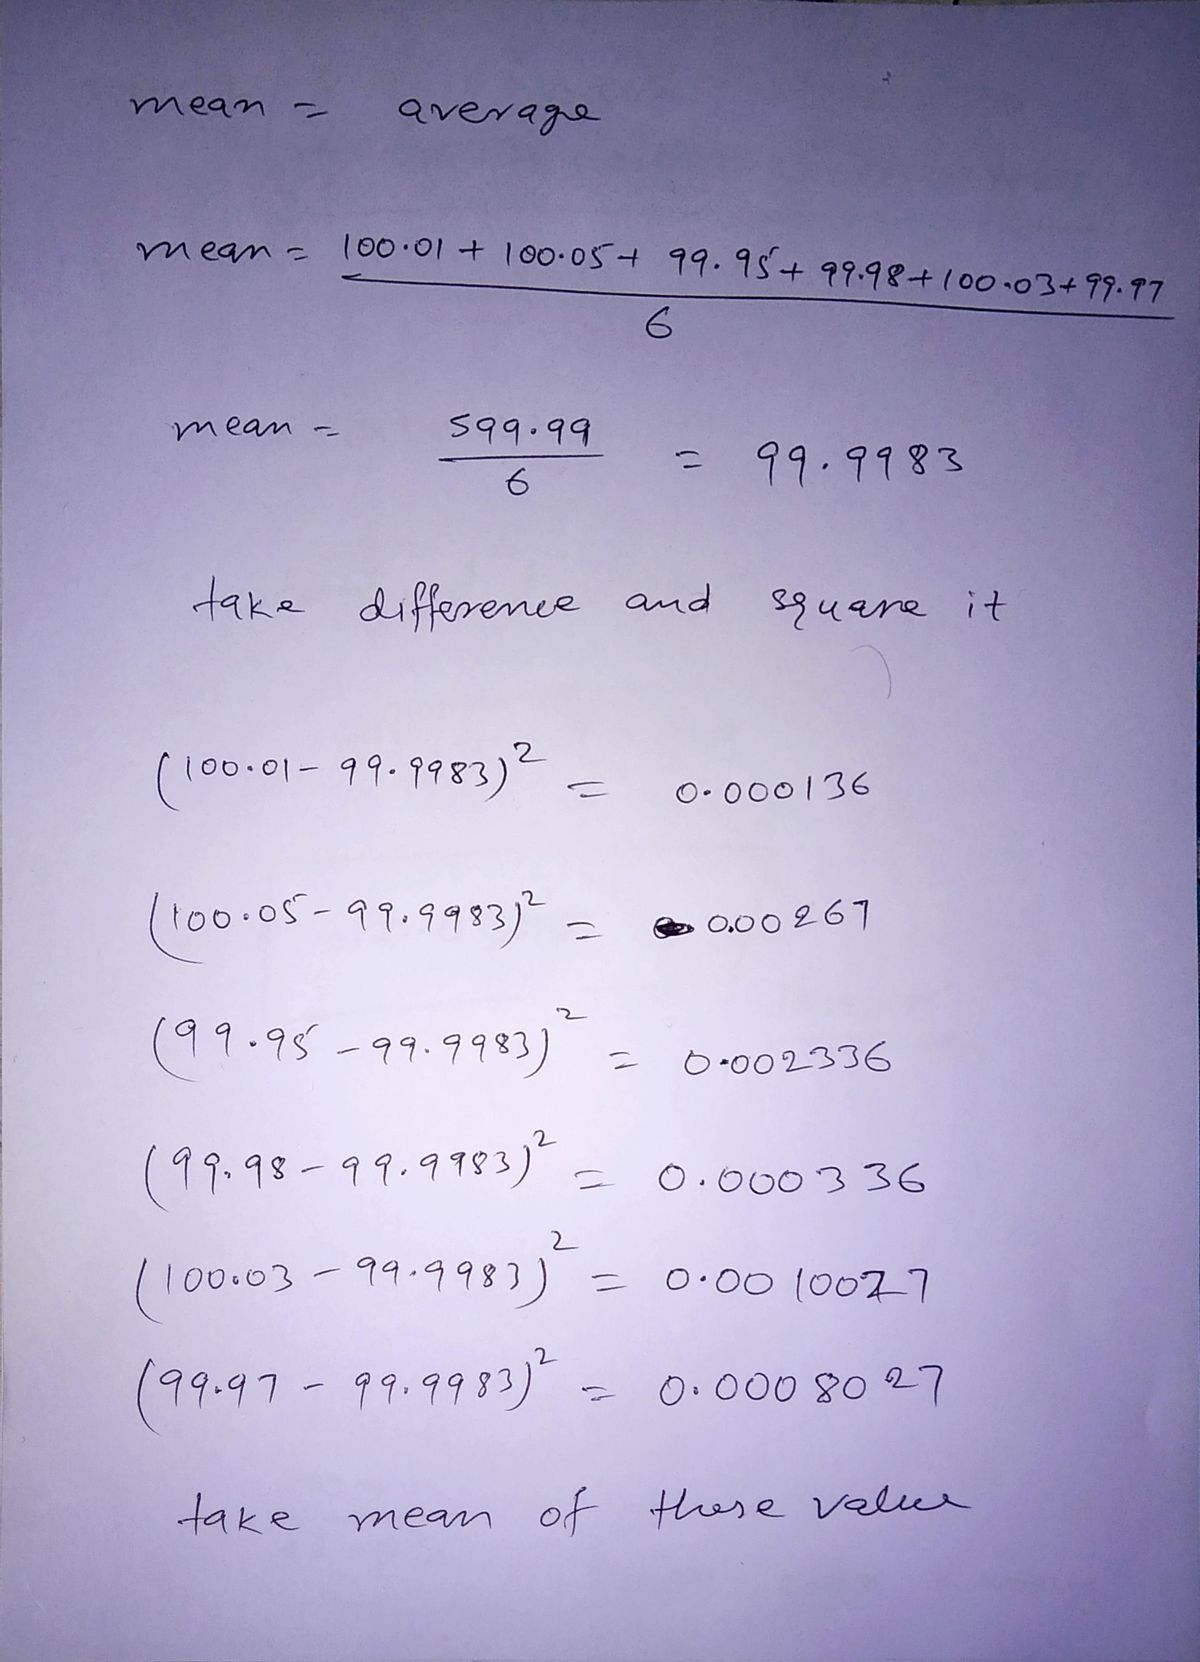 mean = average
mean = 100.01 + 100.05 + 99.95 + 99.98 + 100.03 + 99.97
6
mean = 599.99 = 99.9983
6
take difference and square it
(100.01 - 99.9983)² = 0.000136
(100.05 - 99.9983)² = 0.00267
(99.95 - 99.9983)² = 0.002336
(99.98 - 99.9983)² = 0.000336
(100.03 - 99.9983)² = 0.0010027
(99.97 - 99.9983)² = 0.0008027
take mean of these value